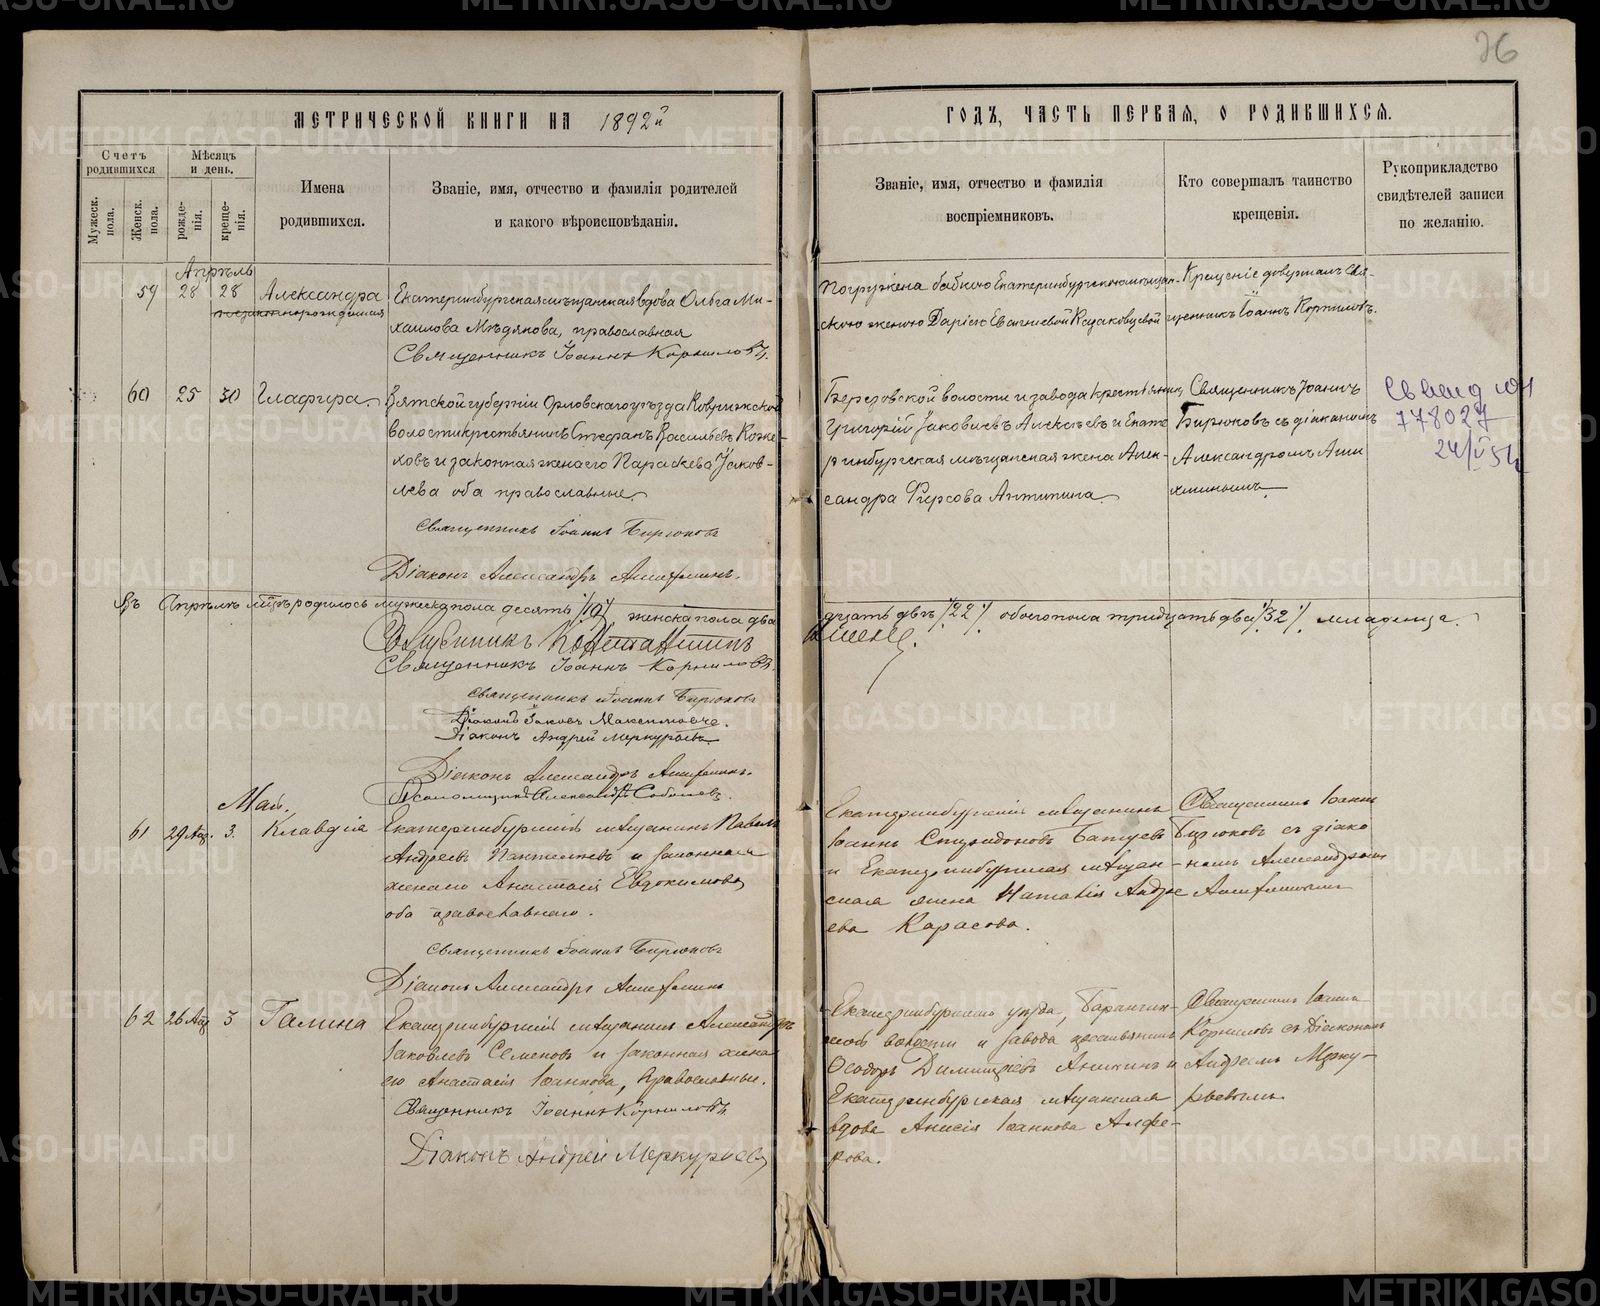 26
МЕТРИЧЕСКОЙ КНИГИ НА 1892й
ГОДЪ, ЧАСТЬ ПЕРВАЯ, О РОДИВШИХСЯ.
Счетъ родившихся
Мѣсяцъ и день.
Мужеск. пола.
Женск. пола.
рожденія.
крещенія.
Имена
родившихся.
Званіе, имя, отчество и фамилія родителей
и какого вѣроисповѣданія.
Званіе, имя, отчество и фамилія
воспріемниковъ.
Кто совершалъ таинство
крещенія.
Рукоприкладство
свидѣтелей записи
по желанію.
Апрѣль
59 28 28 Александра
незаконнорожденная
Екатеринбургская мѣщанская вдова Ольга Ми-
хаилова Мѣдякова, православная
Священникъ Іоаннъ Корниловъ.
Погружена бабкою Екатеринбургскою мѣщан-
скою женою Даріею
Крещеніе довершалъ Свя-
щенникъ Іоаннъ Корниловъ.
60 25 30 Глафира.
Вятской губерніи Орловскаго уѣзда
волости крестьянинъ Стефанъ Васильевъ Коже-
ховъ и законная жена его Параскева Яков-
лева оба православные
Священникъ Іоаннъ Бирюковъ
Діаконъ Александръ
Березовской волости и завода крестьянинъ
Григорій Яковлевъ Алексѣевъ и Екате
ринбургская мѣщанская жена Алек-
сандра Фирсова Антипина
Священникъ Іоаннъ
Бирюковъ съ діакономъ
Александромъ
778027
24/V 54
Въ Апрѣлѣ м-цѣ родилось мужеска пола десять /10/ женска пола два
дцать двѣ /22/ обоего пола тридцать два /32/ младенца.
Священникъ Іоаннъ Корниловъ
Священникъ Іоаннъ Бирюковъ
Діаконъ Іаковъ
Діаконъ Андрей Меркурьевъ
Діаконъ Александръ
Псаломщикъ Александръ Соболевъ.
Май.
61 29 Апр. 3. Клавдія
Екатеринбургскій мѣщанинъ Павелъ
Андреевъ Пантелѣевъ и законная
жена его Анастасія Евдокимова
оба православнаго.
Священникъ Іоаннъ Бирюковъ
Діаконъ Александръ
Екатеринбургскій мѣщанинъ
Іоаннъ Спиридоновъ Батуевъ
и Екатеринбургская мѣщан-
ская жена Наталія Андре
ева Карасова.
Священникъ Іоаннъ
Бирюковъ съ діако
номъ Александромъ
62 26 Апр 3 Галина
Екатеринбургскій мѣщанинъ Александръ
Іаковлевъ Семеновъ и законная жена
его Анастасія Іоаннова, православные.
Священникъ Іоаннъ Корниловъ
Діаконъ Андрей Меркурьевъ
Екатеринбургскаго уѣзда,
волости и завода крестьянинъ
Ѳеодоръ Димитріевъ Аникинъ и
Екатеринбургская мѣщанская
вдова Анисія Іоаннова Алфе-
рова.
Священникъ Іоаннъ
Корниловъ съ Діакономъ
Андреемъ Мерку-
рьевымъ
METRIKI.GASO-URAL.RU